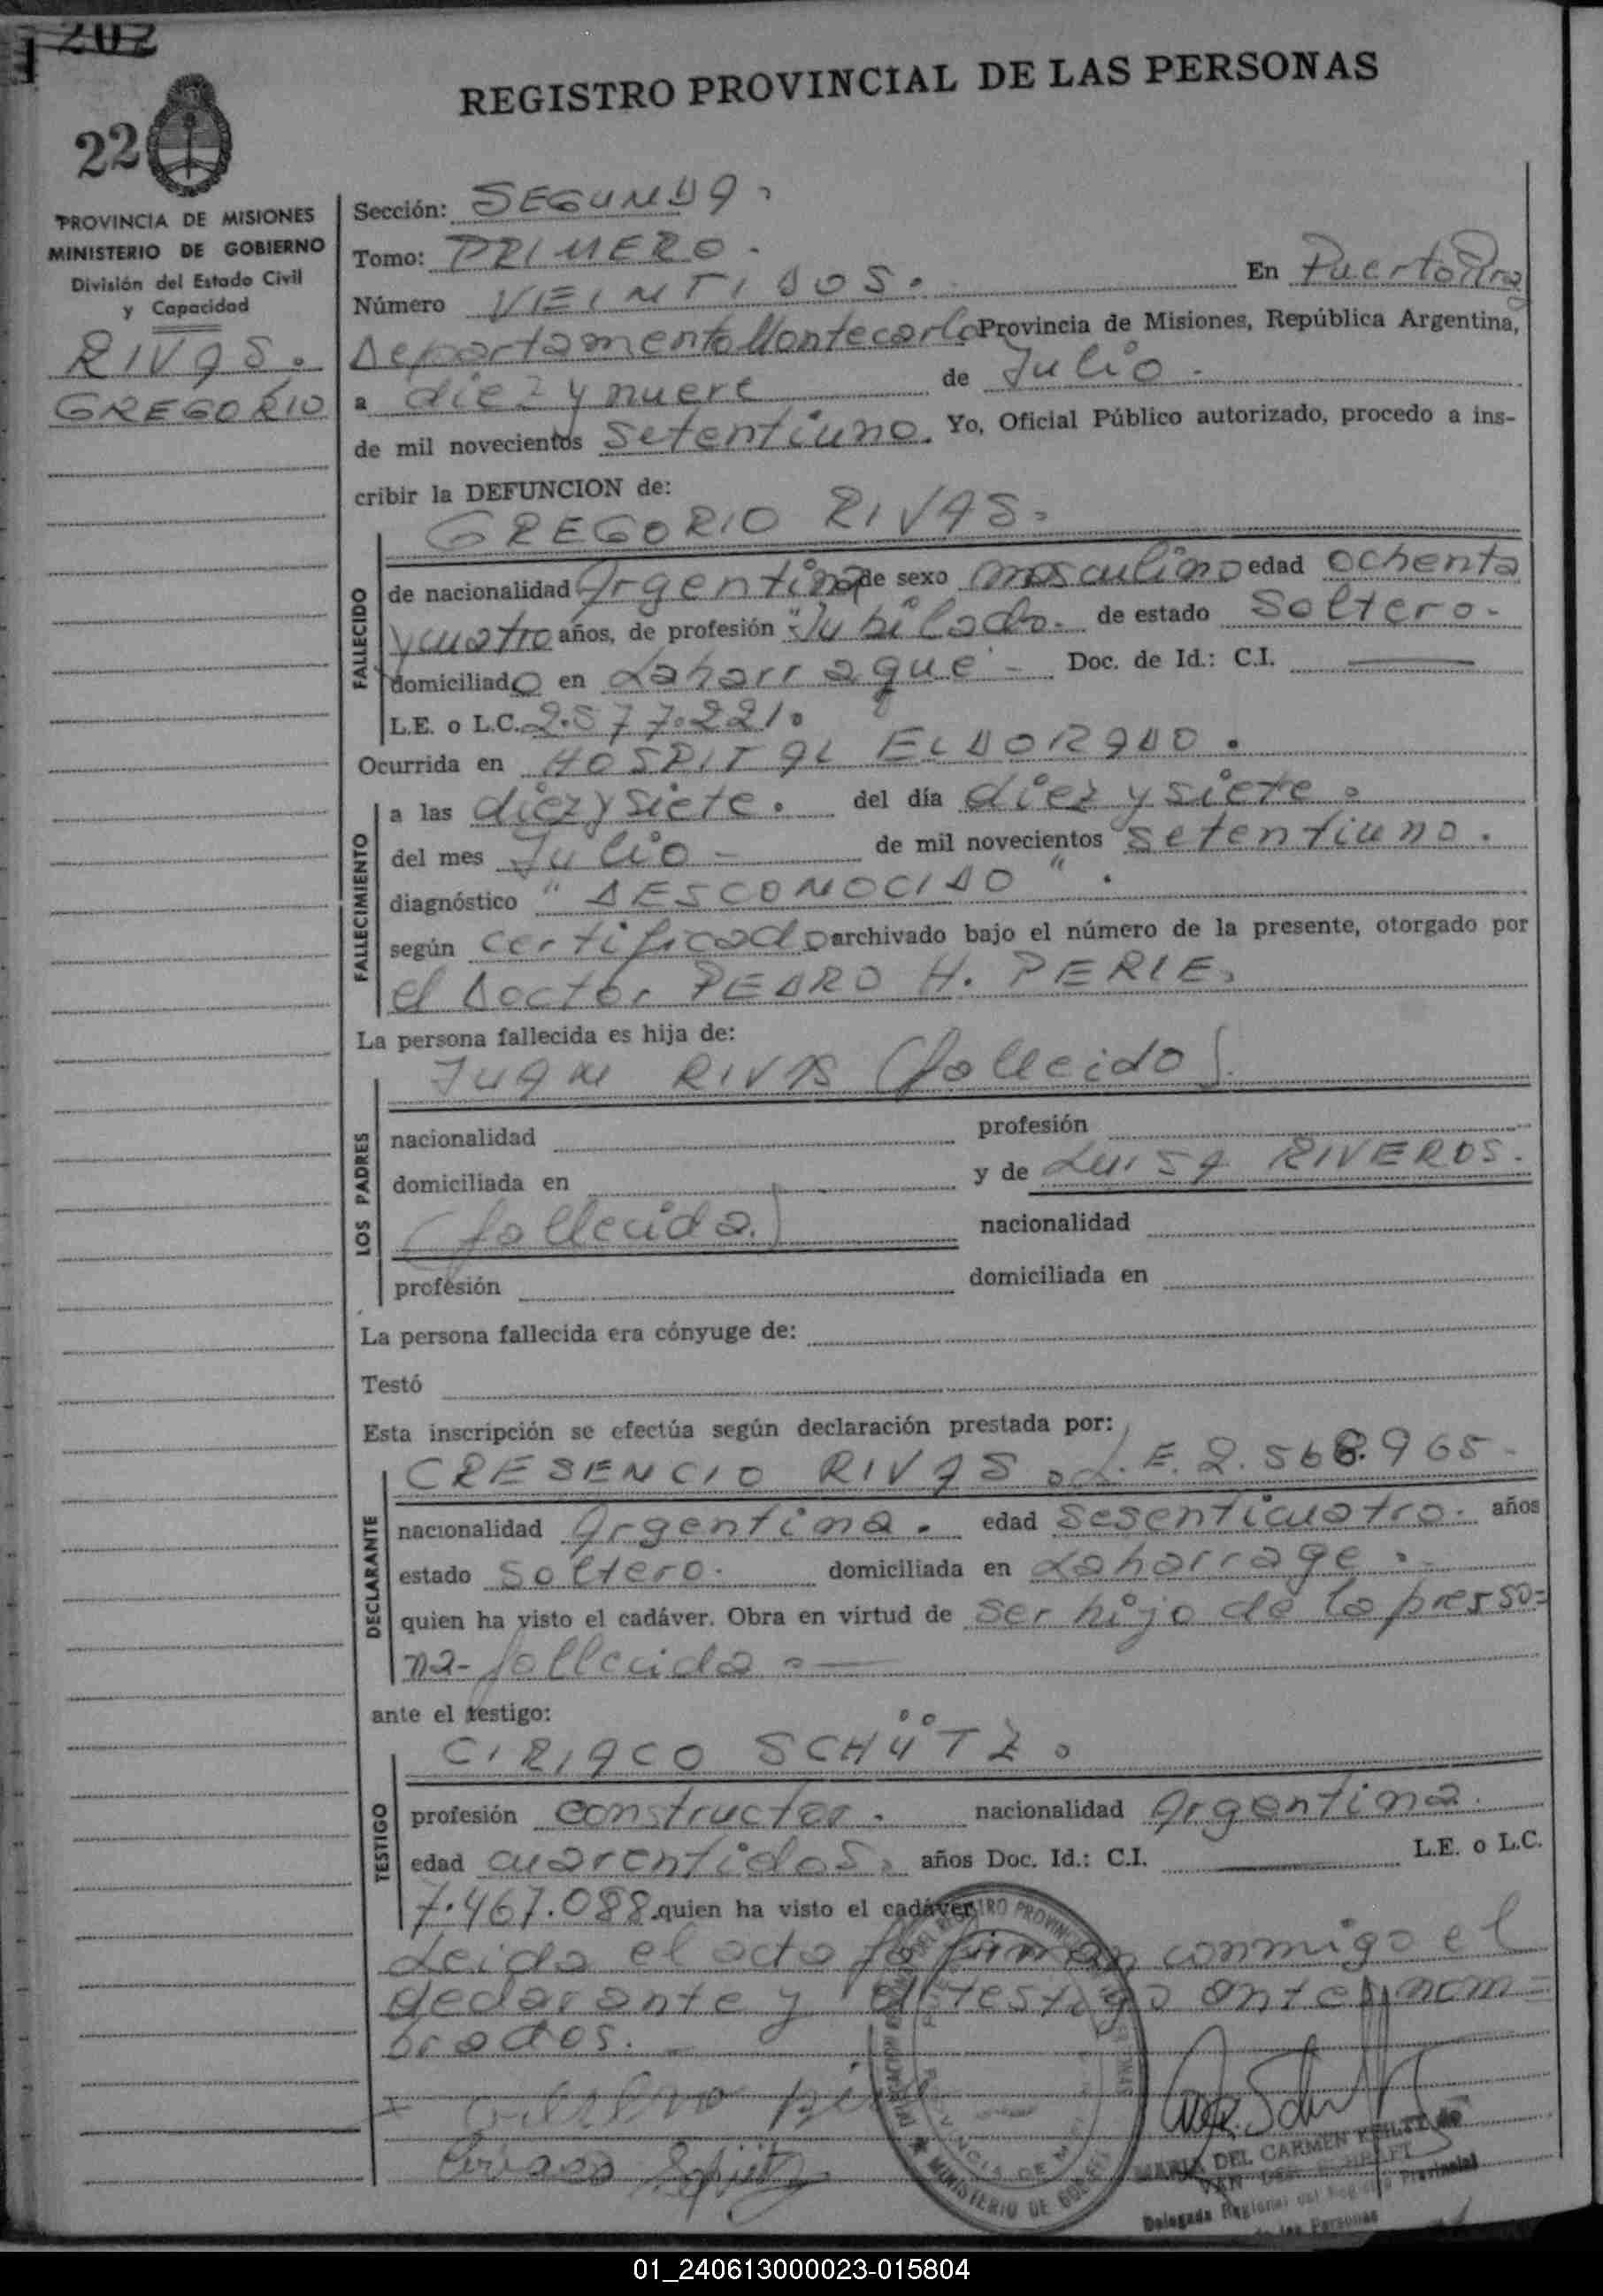 202
REGISTRO PROVINCIAL DE LAS PERSONAS
22
PROVINCIA DE MISIONES
MINISTERIO DE GOBIERNO
División del Estado Civil
y Capacidad
RIVAS.
GREGORIO
Sección: SEGUNDA.
Tomo: PRIMERO.
Número VEINTIDOS. En Puerto
Departamento Montecarlo Provincia de Misiones, República Argentina,
a diez y nueve de Julio.
de mil novecientos setentiuno. Yo, Oficial Público autorizado, procedo a ins-
cribir la DEFUNCION de:
GREGORIO RIVAS.
FALLECIDO
de nacionalidad Argentina de sexo masculino edad ochenta
y cuatro años, de profesión "Jubilado. de estado Soltero.-
domiciliado en Laharrague - Doc. de Id.: C.I. ——
L.E. o L.C. 2.577.221.
Ocurrida en HOSPITAL ELDORADO.
FALLECIMIENTO
a las diez y siete. del día diez y siete.
del mes Julio - de mil novecientos setentiuno.
diagnóstico "DESCONOCIDO".
según certificado archivado bajo el número de la presente, otorgado por
el Doctor PEDRO H. PERIE.
La persona fallecida es hija de:
JUAN RIVAS (fallecido).
LOS PADRES
nacionalidad profesión
domiciliada en y de Luisa RIVEROS.
(fallecida.) nacionalidad
profesión domiciliada en
La persona fallecida era cónyuge de:
Testó
Esta inscripción se efectúa según declaración prestada por:
CRESENCIO RIVAS. L.E. 2.568.965-
DECLARANTE
nacionalidad Argentina. edad sesenticuatro. años
estado soltero. domiciliada en Laharrage.
quien ha visto el cadáver. Obra en virtud de ser hijo de la perso=
na- fallecida.—
ante el testigo:
CIRIACO SCHÜTZ.
TESTIGO
profesión constructor. nacionalidad Argentina.
edad cuarentidos. años Doc. Id.: C.I. —— L.E. o L.C.
7.467.088 quien ha visto el cadáver.
Leida el acta la firman conmigo el
declarante y el testigo antes nom=
brados.-
Ciriaco Schütz
MARIA DEL CARMEN
Delegada Regional del Registro Provincial
de las Personas
MINISTERIO DE
01_240613000023-015804